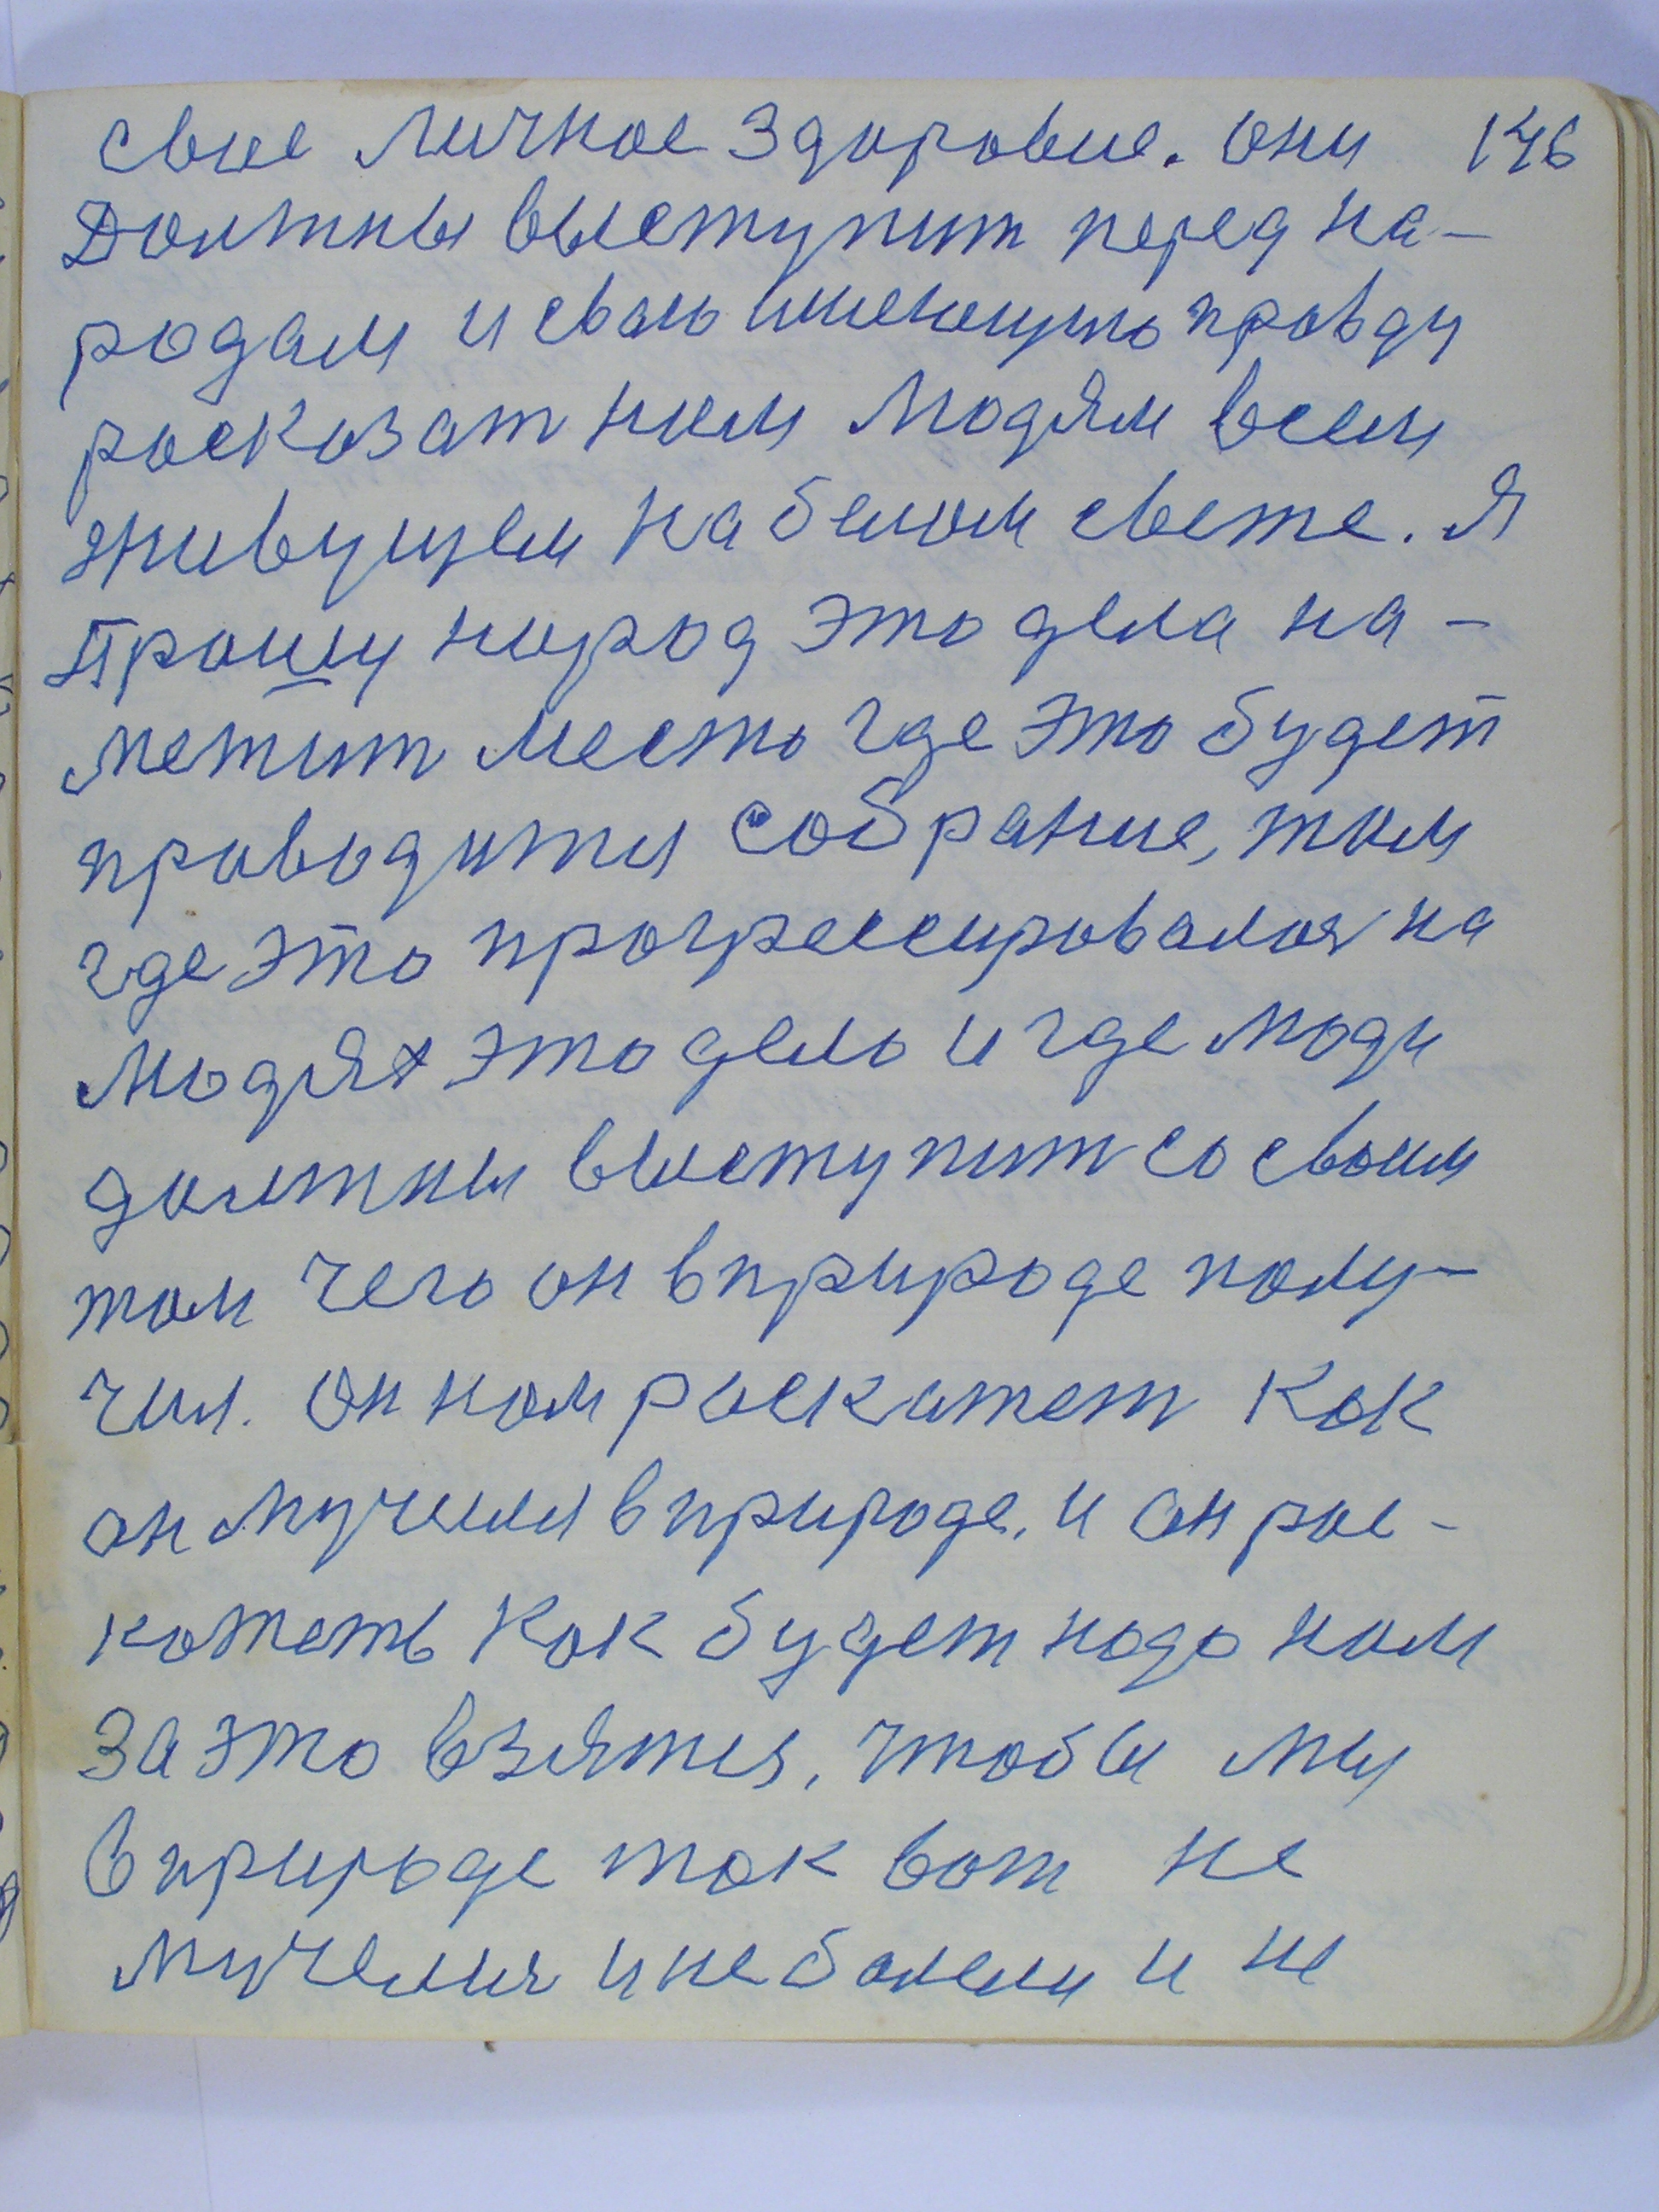 свое личное здоровие. они 146
Должны выступит перед на-
родам и сваю имеющую правду
росказат ним людям всем
живущем на белом свете. Я
Прошу народ это дела на-
метит место где это будет
проводится собрание, там
где это прогрессировалося на
людях это дело и где люди
должны выступит со своим
том чего он в природе полу-
чил. он нам роскажет как
он мучился в природе. и он рос-
кожеть как будет надо нам
за это взятся, чтобы мы
в природе так вот не
мучелися и не болели и не